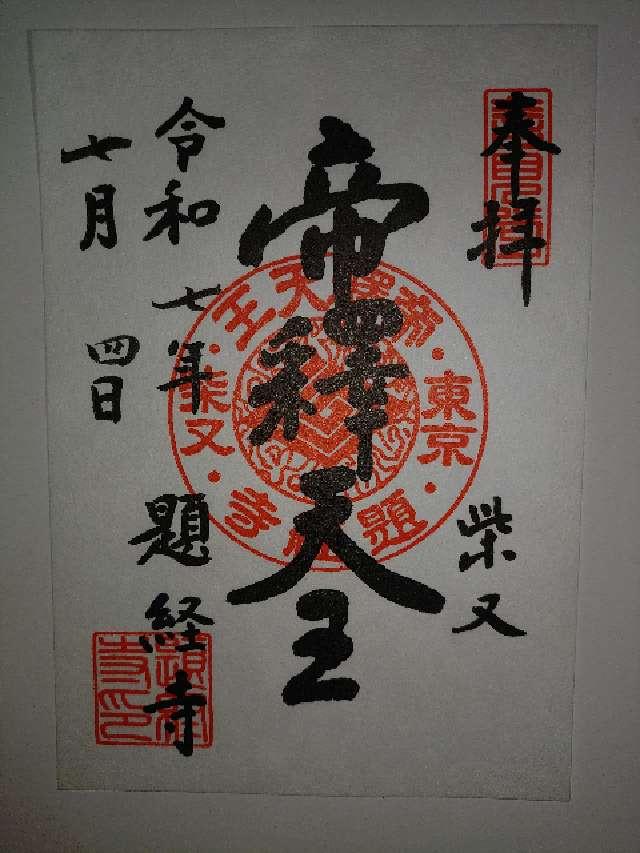 奉拝
柴又
帝釋天王
令和七年
七月四日
題経寺
帝釋天王
東京
柴又
題経寺